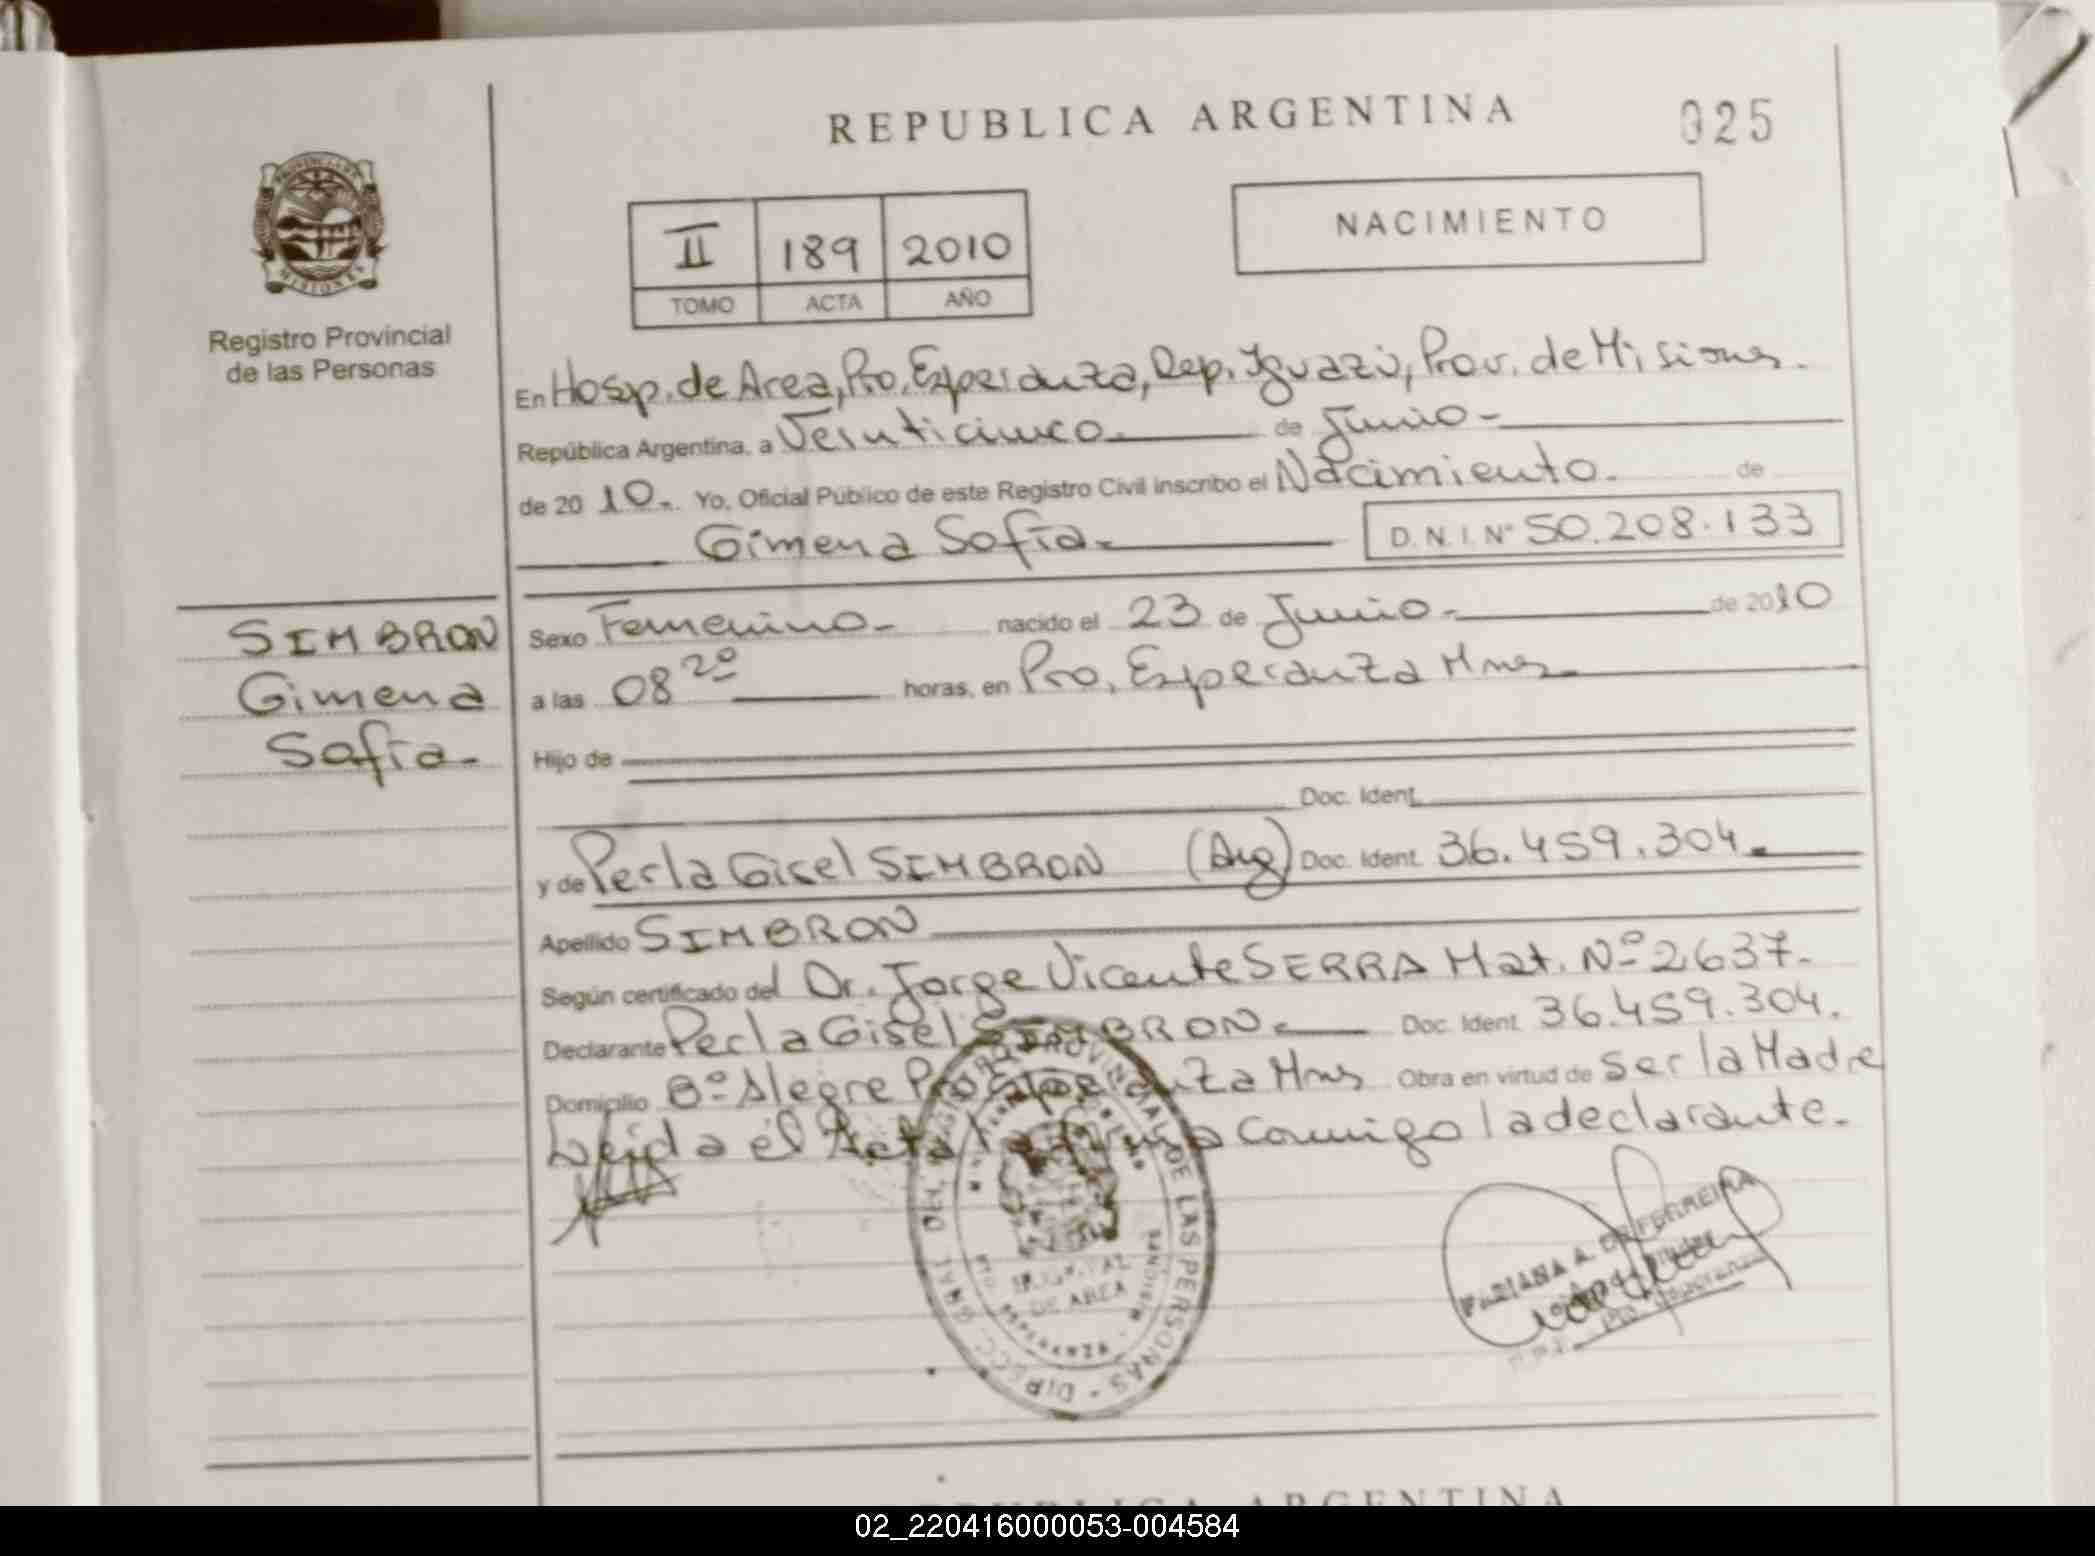 REPUBLICA ARGENTINA
025
PROVINCIA DE
MISIONES
Registro Provincial
de las Personas
II 189 2010
TOMO ACTA AÑO
NACIMIENTO
En Hosp. de Area, Pto. Esperanza, Dep. Iguazú, Prov. de Misiones.
República Argentina, a Veinticinco.- de Junio-
de 2010.- Yo, Oficial Público de este Registro Civil inscribo el Nacimiento. de
Gimena Sofía.- D.N.I. Nº 50.208.133
SIMBRON
Gimena
Sofía-
Sexo Femenino- nacido el 23 de Junio- de 2010
a las 08 20 horas, en Pto. Esperanza Mnes-
Hijo de
Doc. Ident.
y de Perla Gisel SIMBRON (Arg) Doc. Ident. 36.459.304.-
Apellido SIMBRON
Según certificado del Dr. Jorge Vicente SERRA Mat. Nº 2637.-
Declarante Perla Gisel SIMBRON.- Doc. Ident. 36.459.304.
Domicilio Bº Alegre Pto Esperanza Mnes Obra en virtud de ser la Madre
Leída el Acta la firma conmigo la declarante.-
REGISTRO PROVINCIAL DE LAS PERSONAS - DIP.
HOSPITAL
DE AREA
PTO. ESPERANZA - MISIONES
FABIANA A. DE FERREIRA
Pto. Esperanza
REPUBLICA ARGENTINA
02_220416000053-004584